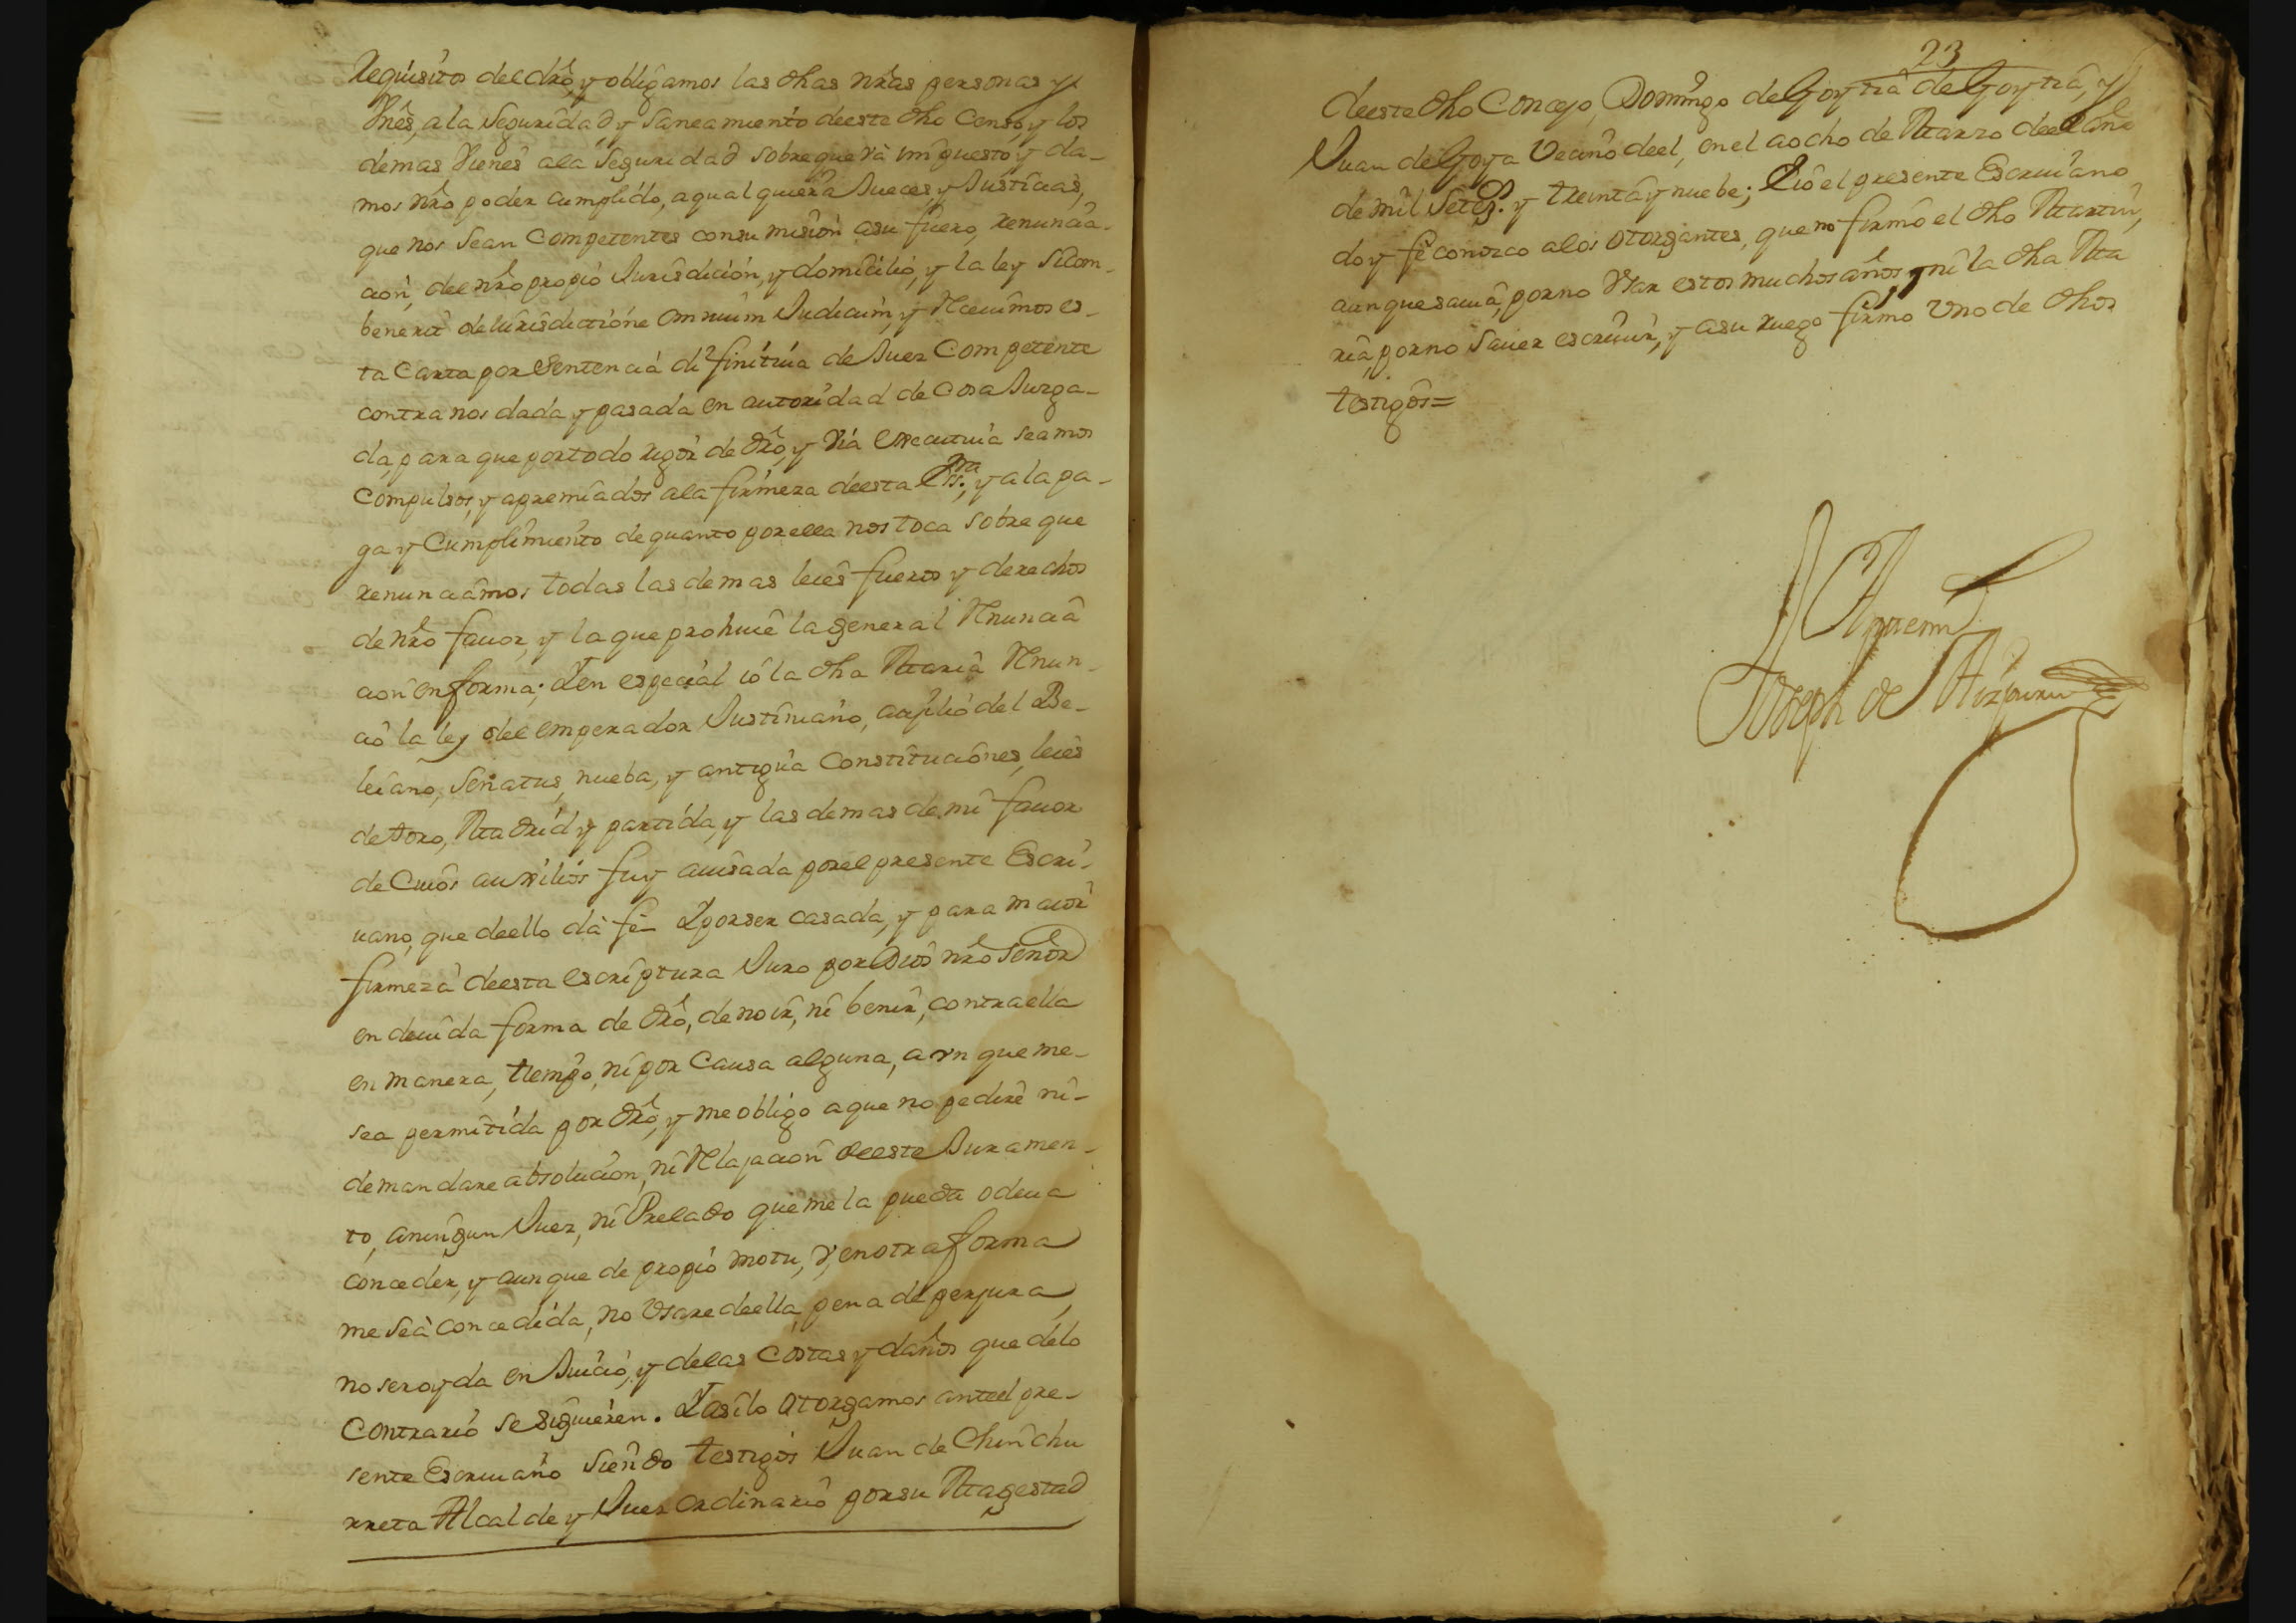 Requisitos del dró, y obligamos las dhas nrãs personas y
Vnês, a la Seguridad y Saneamiento deeste dho Censo, y los
demas Vienes ala Seguridad sobre que va impuesto y da-
mos nrõ poder cumplido, a qualquiera Jueces, y Justicias,
que nos Sean Competentes con sumision asu fuero, renuncia-
cion, del nrõ propio Jurisdicion, y domicilio, y la ley Sicom-
benerit de lurisdictione Omnium Judicum, y Receuimos es-
ta Carta por Sentencia difinitiua de Juez Competente
contra nos dada y pasada en autoridad de Cosa Juzga-
da, para que por todo rigor de dró, y via executiua seamos
Compulsos, y apremiados ala firmeza deesta Essra, y ala pa-
ga y Cumplimiento de quanto por ella nos toca sobre que
renunciamos todas las demas leies fueros y derechos
de nrõ fauor, y la que prohiuê la general Renuncia
cion en forma; Y en especial io la dha Maria Renun-
cio la ley del emperador Justiniano, auxilio del Be-
leiano, Senatus, nueba, y antigua Constituciones, leies
de toro, Madrid y partida, y las demas de mi fauor
de Cuios auxilios fuy auisada por el presente Escri-
uano, que deello da fe Y por ser casada, y para maior
firmeza deesta escriptura Juro por Dios nrõ Señor
en deuida forma de dró, de no ir, ni benir, contra ella
en manera, tiempo, ni por Causa alguna, avn que me-
sea permitida por dró, y me obligo a que no pedire ni-
demandare absolucion, ni Relajacion deeste Juramen-
to, aningun Juez, ni Prelado que me la pueda o deua
conceder, y aunque de propio motu, v, en otra forma
me Sea concedida, no Vsare deella, pena de perjura,
no ser oyda en Juicio, y delas Costas y daños que delo
Contrario se siguieren. Y asi lo otorgamos ante el pre-
sente Escriuano Siendo testigos Juan de Chinchu
rreta Alcalde y Juez Ordinario por su Magestad
23
deeste dho Concejo, Domingo de Goytia de Goytia, y
Juan de Goya Vecino deel, en el a ocho de Marzo deel año
de mil Setecs. y treinta y nuebe; E io el presente Escriuano
doy fe conozco alos otorgantes, que no firmo el dho Martin,
aunque sauia, por no Vsar estos muchos años, ni la dha Ma
ria, por no Sauer escriuir, y asu ruego firmo Vno de dhos
testigos=
Joseph de